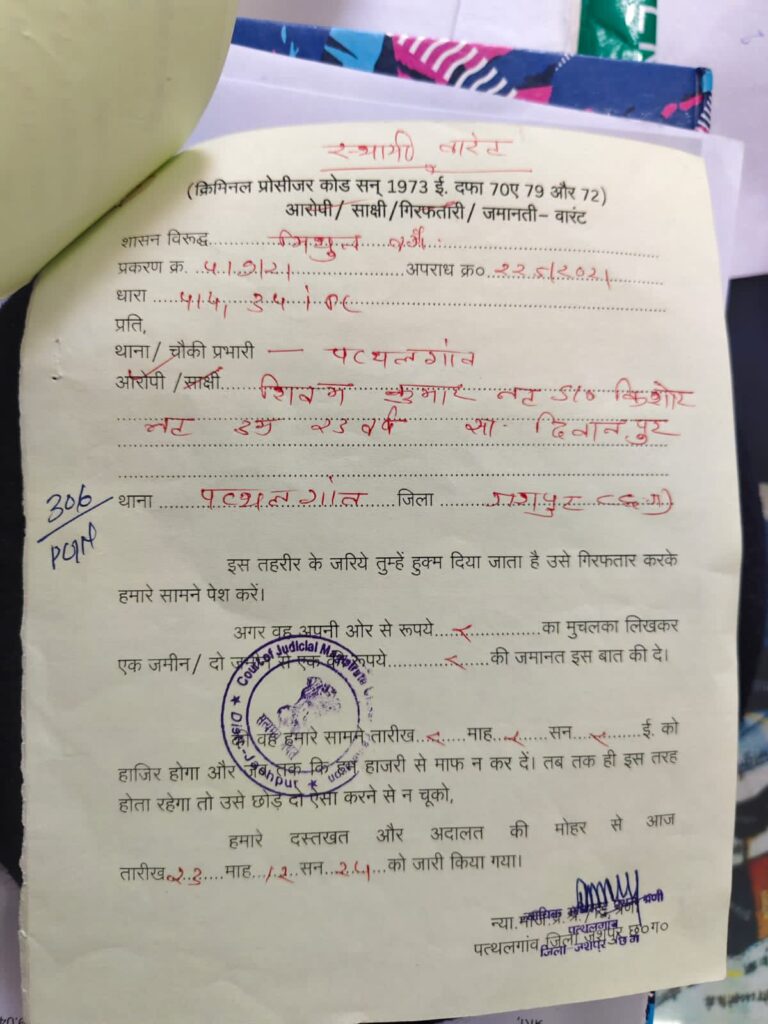 स्थायी वारंट
(क्रिमिनल प्रोसीजर कोड सन् 1973 ई. दफा 70ए 79 और 72)
आरोपी/ साक्षी/गिरफ्तारी/ जमानती- वारंट
शासन विरूद्ध
प्रकरण क्र. अपराध क्र०
धारा
प्रति,
थाना/ चौकी प्रभारी — पत्थलगांव
आरोपी /साक्षी शिवम कुमार नट S/o किशोर
नट उम्र २३ वर्ष सा. दिवानपुर
306
PGN
थाना पत्थलगांव जिला जशपुर (छ.ग)
इस तहरीर के जरिये तुम्हें हुक्म दिया जाता है उसे गिरफतार करके
हमारे सामने पेश करें।
अगर वह अपनी ओर से रूपये का मुचलका लिखकर
एक जमीन/ दो से एक की रूपये की जमानत इस बात की दे।
Court of Judicial Magistrate
Distt-Jashpur
वह हमारे सामने तारीख माह सन ई. को
हाजिर होगा और तक कि हम हाजरी से माफ न कर दें। तब तक ही इस तरह
होता रहेगा तो उसे छोड़ दो ऐसा करने से न चूको,
हमारे दस्तखत और अदालत की मोहर से आज
तारीख २३ माह १२ सन २४ को जारी किया गया।
पत्थलगांव जिला जशपुर छ०ग०
पत्थलगांव
जिला-जशपुर छ ग